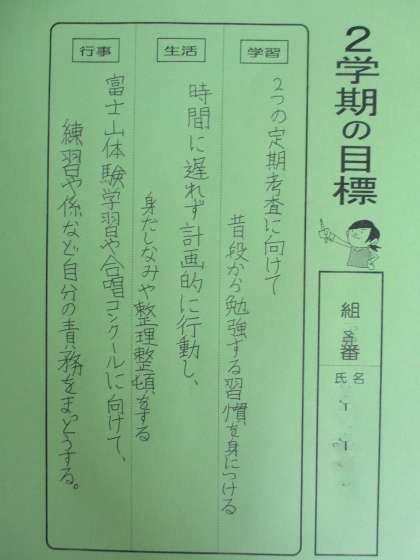 2学期の目標
組
番
氏名
学習
2つの定期考査に向けて
昔段から勉強する習慣を身につける
生活
時間に遅れず計画的に行動し、
身だしなみや整理整頓をする
行事
富士山体験学習や合唱コンクールに向けて、
練習や係など自分の責務をまっとうする。